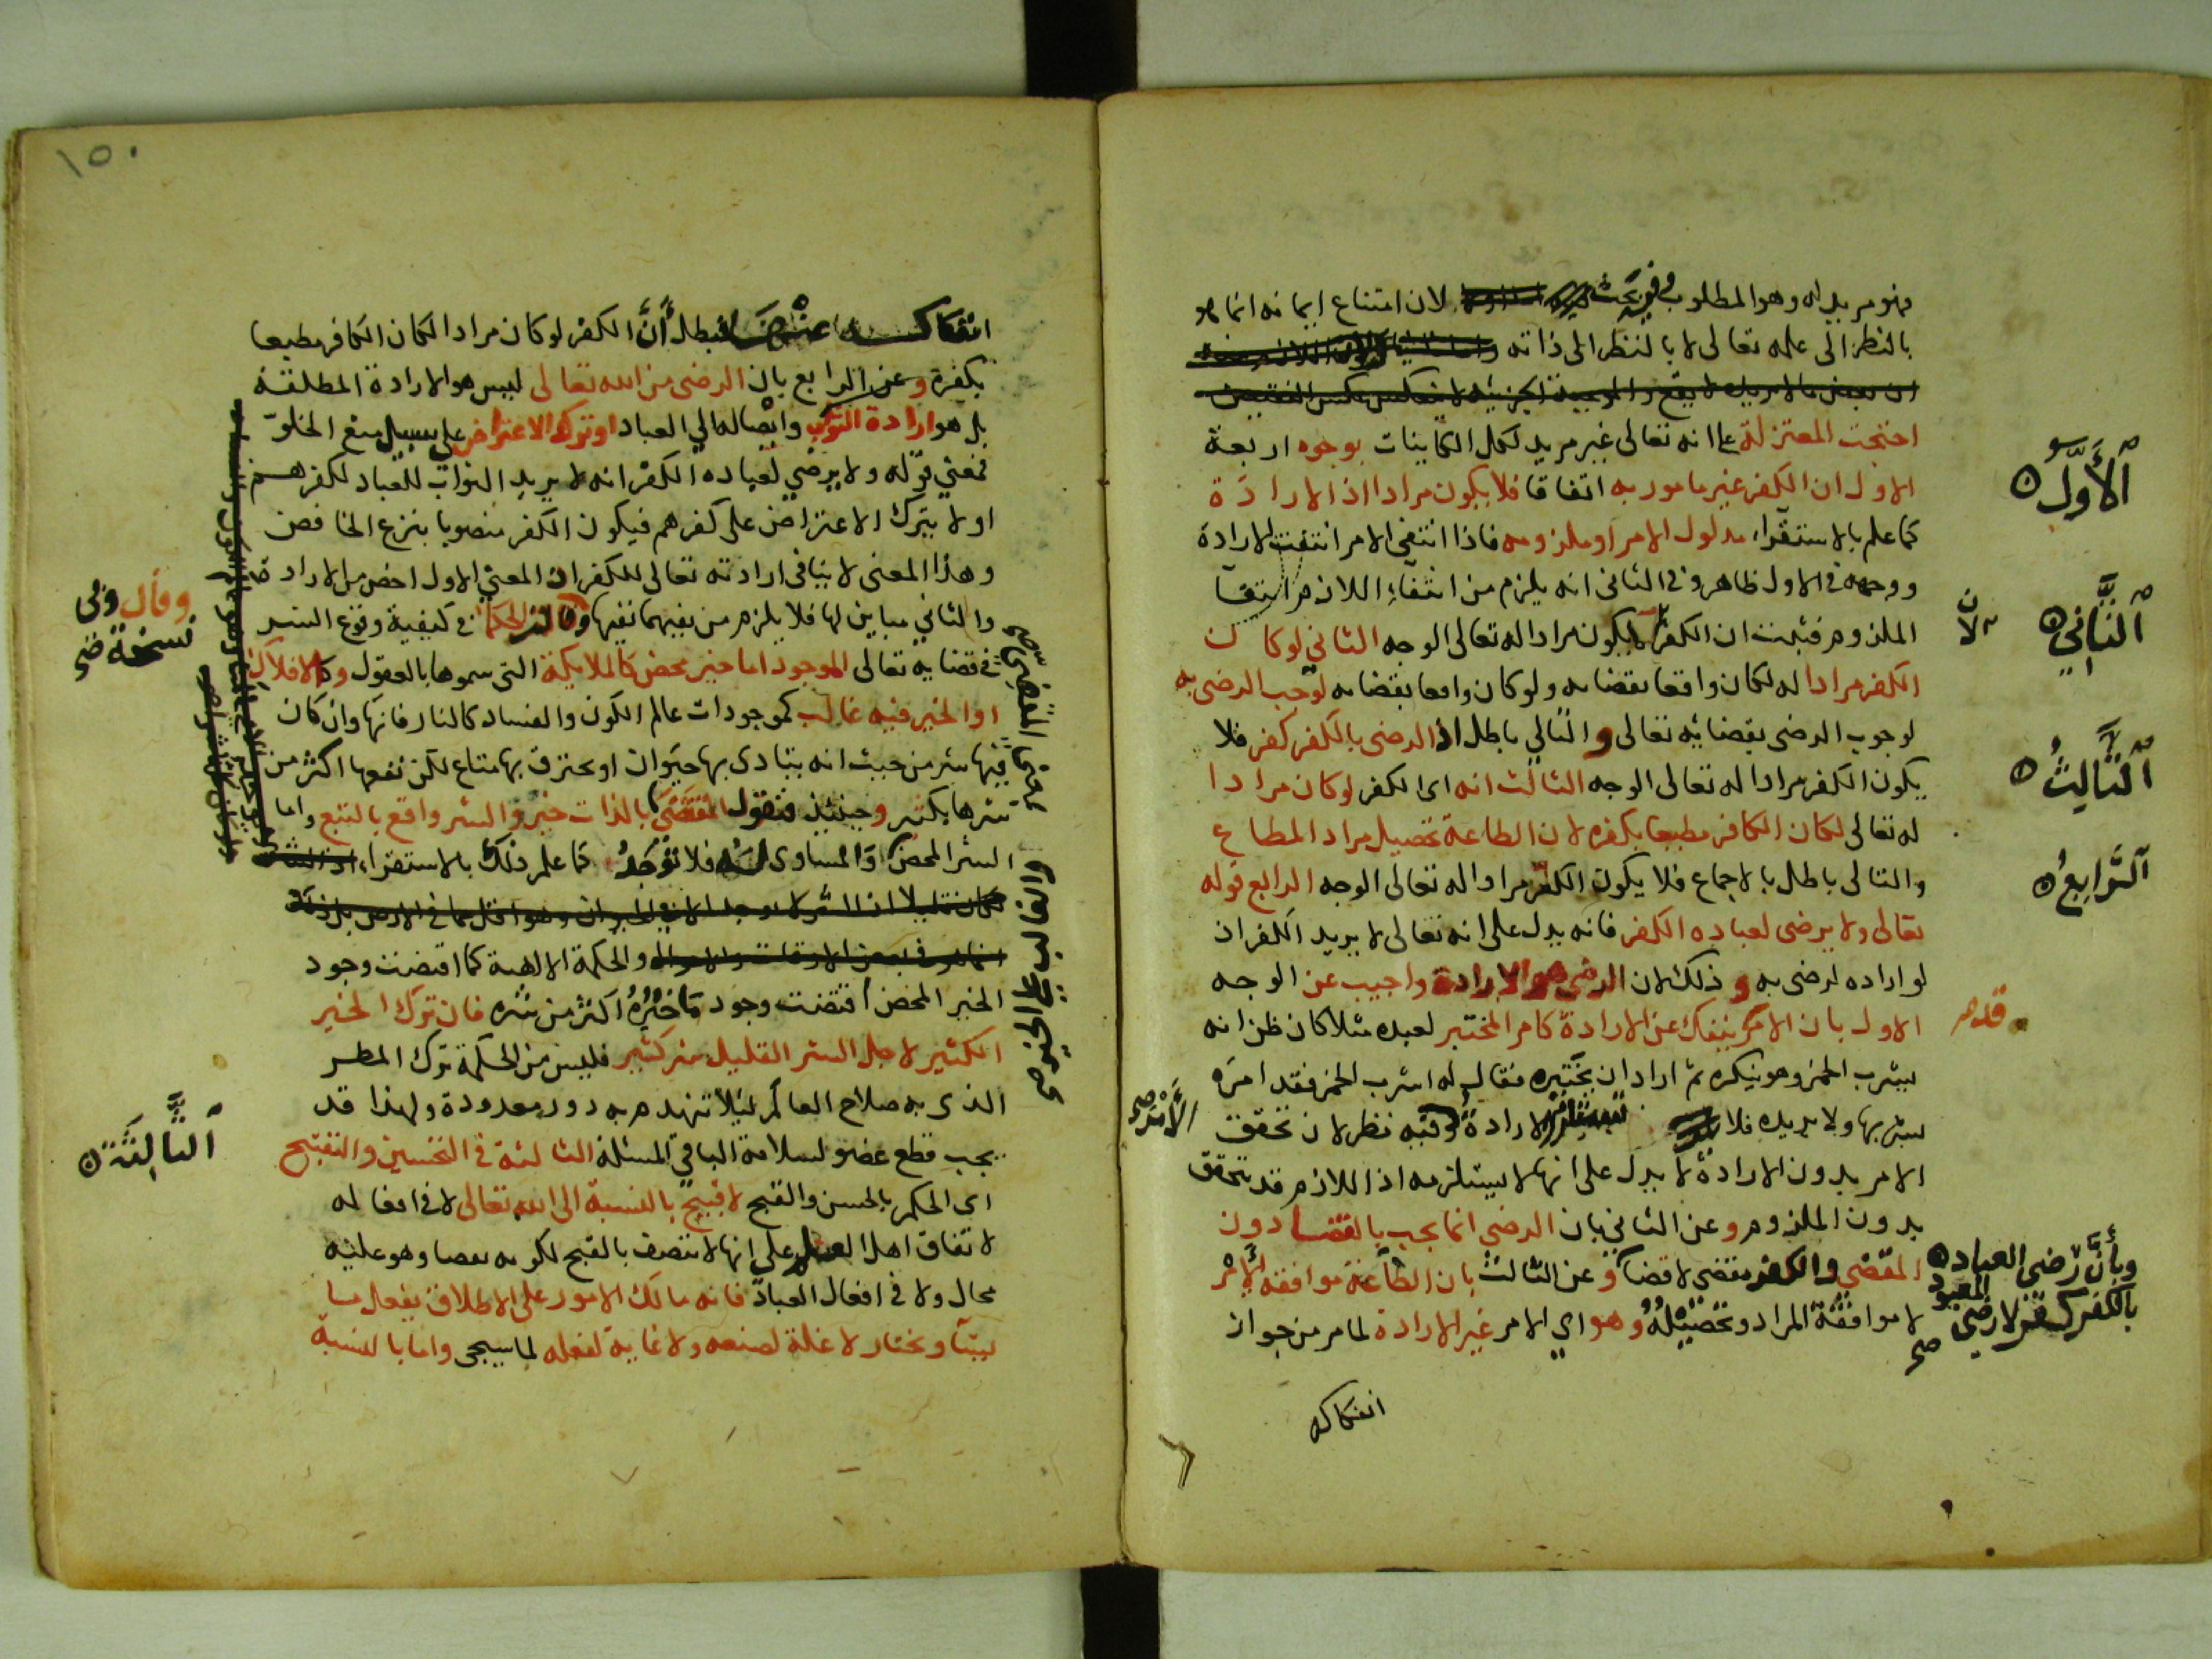 فهو مريد له وهو المطلوب وفيه بحث لان امتناع ايمانه انما هو
بالنظر الى علمه تعالى لا بالنظر الى ذاته
احتجت المعتزلة على انه تعالى غير مريد لكل الكاينات بوجوه اربعة
الاول ان الكفر غير مامور به اتفاقا فلا يكون مرادا اذ الارادة
كما علم بالاستقراء مدلول الامر او ملزومه فاذا انتفى الامر انتفت الارادة
ووجهه في الاول ظاهر وفي الثاني انه يلزم من انتفاء اللازم انتفا
الملزوم فثبت ان الكفر لا يكون مرادا له تعالى الوجه الثاني لو كان
الكفر مرادا له لكان واقعا بقضايه ولو كان واقعا بقضايه لوجب الرضى به
لوجوب الرضى بقضائه تعالى والتالي باطل اذ الرضى بالكفر كفر فلا
يكون الكفر مرادا له تعالى الوجه الثالث انه اى الكفر لو كان مرادا
له تعالى لكان الكافر مطيعا بكفره لان الطاعة تحصيل مراد المطاع
والتالى باطل بالاجماع فلا يكون الكفر مرادا له تعالى الوجه الرابع قوله
تعالى ولا يرضى لعباده الكفر فانه يدل على انه تعالى لا يريد الكفر اذ
لو اراده لرضى به وذلك لان الرضى هو الارادة واجيب عن الوجه
الاول بان الامر قد ينفك عن الارادة كامر المختبر لعبده مثلا كان ظن انه
يشرب الخمر وهو ينكره ثم اراد ان يختبره فقال له اشرب الخمر فقد امره
بشربها ولا يريده فلا الارادة وفيه نظر لان تحقق
الامر بدون الارادة لا يدل على انها لا يستلزمه اذ اللازم قد يتحقق
بدون الملزوم وعن الثاني بان الرضى انما يجب بالقضا دون
المقضي والكفر مقضي لا قضا وعن الثالث بان الطاعة موافقة الامر
لا موافقة المراد وتحصيله وهو اي الامر غير الارادة لما مر من جواز
انفكاكه
اَلْأَوَّلُ
اَلثَّانِيُ
اَلثَّالِثُ
اَلرَّابِعُ
قد
الامر صح
وبأن رضى العباد
بالكفر كفر لا رضى المعبود صح
١٥٠
انفكاكه عنها فبطل أنَّ الكفر لو كان مرادا لكان الكافر مطيعا
بكفره وعن الرابع بان الرضى من الله تعالى ليس هو الارادة المطلقة
بل هو ارادة الثواب وايصاله الي العباد او ترك الاعتراض على سبيل منع الخلو
فمعني قوله ولا يرضي لعباده الكفر انه لا يريد الثواب للعباد لكفرهم
او لا يترك الاعتراض على كفرهم فيكون الكفر منصوبا بنزع الخافض
وهذا المعنى لا ينافى ارادته تعالى للكفر اذ المعني الاول اخص من الارادة
والثاني مباين لها فلا يلزم من نفيهما نفيها وقالت الحكما في كيفية وقوع الشر
في قضايه تعالى الموجود اما خير محض كالملايكة التي سموها بالعقول وكالافلاك
او الخير فيه غالب كموجودات عالم الكون والفساد كالنار فانها وان كان
فيها شر من حيث انه يتاذى بها حيوان او يحترق بها متاع لكن نفعها اكثر من
شرها بكثير وحينئذ فنقول المقتضى بالذات خير والشر واقع بالتبع واما
الشر المحض والمساوى فلا نوجدُ كما علم ذلك بالاستقراء
والحكمة الالهية كما اقتضت وجود
الخير المحض اقتضت وجود ما خَيْرُهُ اكثر من شره فان ترك الخير
الكثير لاجل الشر القليل شر كثير فليس من الحكمة ترك المطر
الذى به صلاح العالم ليلا تنهدم به دور معدودة ولهذا قد
يجب قطع عضو لسلامة الباقي المسئلة الثالثة في التحسين والتقبيح
اى الحكم بالحسن والقبح لا قبيح بالنسبة الى الله تعالى لا في افعاله
لاتفاق اهل العقل على انها لا تتصف بالقبح لكونه نقصا وهو عليه
محال ولا في افعال العباد فانه مالك الامور على الاطلاق يفعل ما
يشا ويختار لا علة لصنعه ولا غاية لفعله لما سيجى واما بالنسبة
وقال وفى
نسخة صح
والغالب على الخير صح
اَلثَّالِثَةُ